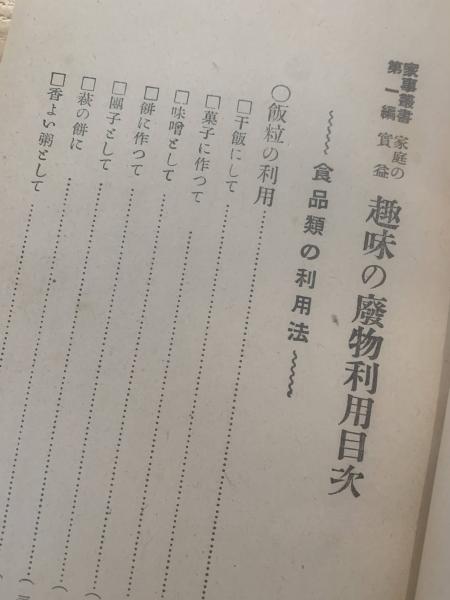 家事叢書
第一編
家庭の
實益
趣味の廢物利用目次
食品類の利用法
〇飯粒の利用
□干飯にして
□菓子に作つて
□味噌として
□餅に作つて
□團子として
□萩の餅に
□香よい粥として